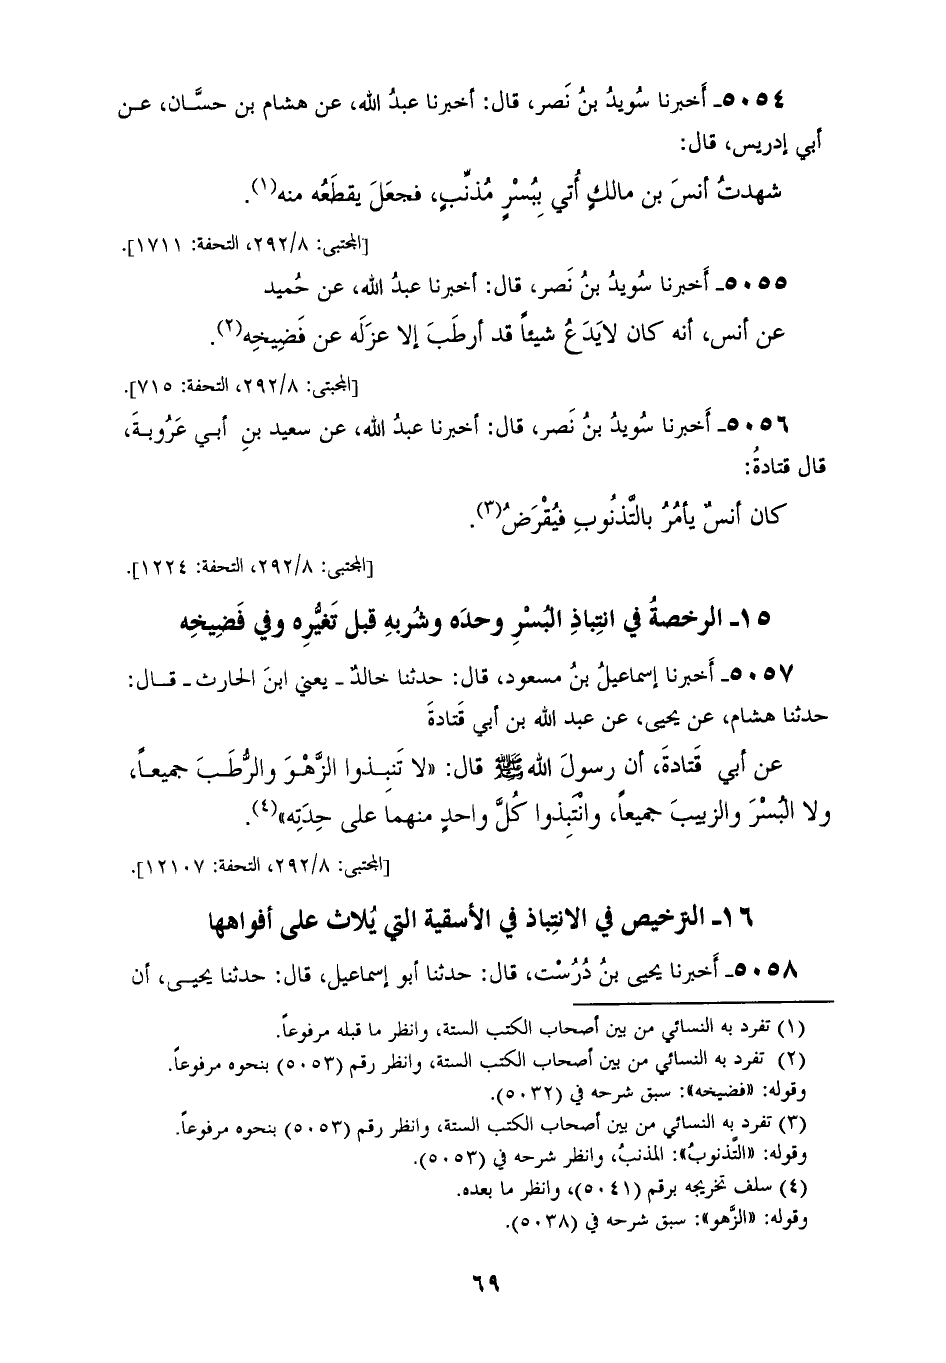 ٥٠٥٤ـ أَخبرنا سُويدُ بنُ نَصر، قال: أخبرنا عبدُ الله، عن هشام بن حسَّان، عـن
أبي إدريس، قال:
شهدتُ أنسَ بن مالكٍ أُتي بِبُسْرٍ مُذنِّبٍ، فجعَلَ يقطَعُه منه(١).
[المجتبى: ٢٩٢/٨، التحفة: ١٧١١].
٥٠٥٥ـ أَخبرنا سُويدُ بنُ نَصر، قال: أخبرنا عبدُ الله، عن حُميد
عن أنس، أنه كان لايَدَعُ شيئاً قد أرطَبَ إلا عزَلَه عن فَضِيخِه(٢).
[المجتبى: ٢٩٢/٨، التحفة: ٧١٥].
٥٠٥٦ـ أَخبرنا سُويدُ بنُ نَصر، قال: أخبرنا عبدُ الله، عن سعيد بنِ أبـي عَرُوبـةَ،
قال قتادةُ:
كان أنسٌ يأمُرُ بالتَّذنُوبِ فيُقْرَضُ(٣).
[المجتبى: ٢٩٢/٨، التحفة: ١٢٢٤].
١٥ـ الرخصةُ في انتِباذِ البُسْرِ وحدَه وشُربهِ قبل تَغيُّرِه وفي فَضِيخِه
٥٠٥٧ـ أَخبرنا إسماعيلُ بنُ مسعود، قال: حدثنا خالدٌ ـ يعني ابنَ الحارث ـ قـال:
حدثنا هشام، عن يحيى، عن عبد الله بن أبي قَتادةَ
عن أبي قَتادةَ، أن رسولَ الله ﷺ قال: «لا تَنبِـذوا الزَّهْـوَ والرُّطَـبَ جميعـاً،
ولا البُسْرَ والزبيبَ جميعاً، وانْتَبِذوا كُلَّ واحدٍ منهما على حِدَتِه»(٤).
[المجتبى: ٢٩٢/٨، التحفة: ١٢١٠٧].
١٦ـ الترخيص في الانتِباذ في الأسقية التي يُلاث على أفواهها
٥٠٥٨ـ أَخبرنا يحيى بنُ دُرُسْت، قال: حدثنا أبو إسماعيل، قال: حدثنا يحيـى، أن
(١) تفرد به النسائي من بين أصحاب الكتب الستة، وانظر ما قبله مرفوعاً.
(٢) تفرد به النسائي من بين أصحاب الكتب الستة، وانظر رقم (٥٠٥٣) بنحوه مرفوعاً.
وقوله: «فضيخه»: سبق شرحه في (٥٠٣٢).
(٣) تفرد به النسائي من بين أصحاب الكتب الستة، وانظر رقم (٥٠٥٣) بنحوه مرفوعاً.
وقوله: «التَّذنوبُ»: المذنبُ، وانظر شرحه في (٥٠٥٣).
(٤) سلف تخريجه برقم (٥٠٤١)، وانظر ما بعده.
وقوله: «الزَّهو»: سبق شرحه في (٥٠٣٨).
٦٩